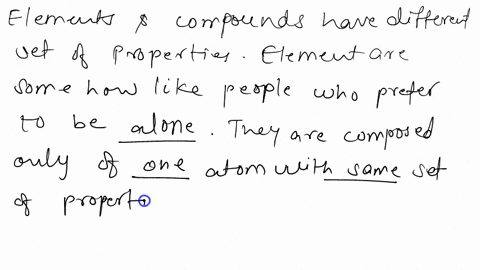 Elements & compounds have different
set of properties. Element are
some how like people who prefer
to be alone. They are composed
only of one atom with same set
of propert